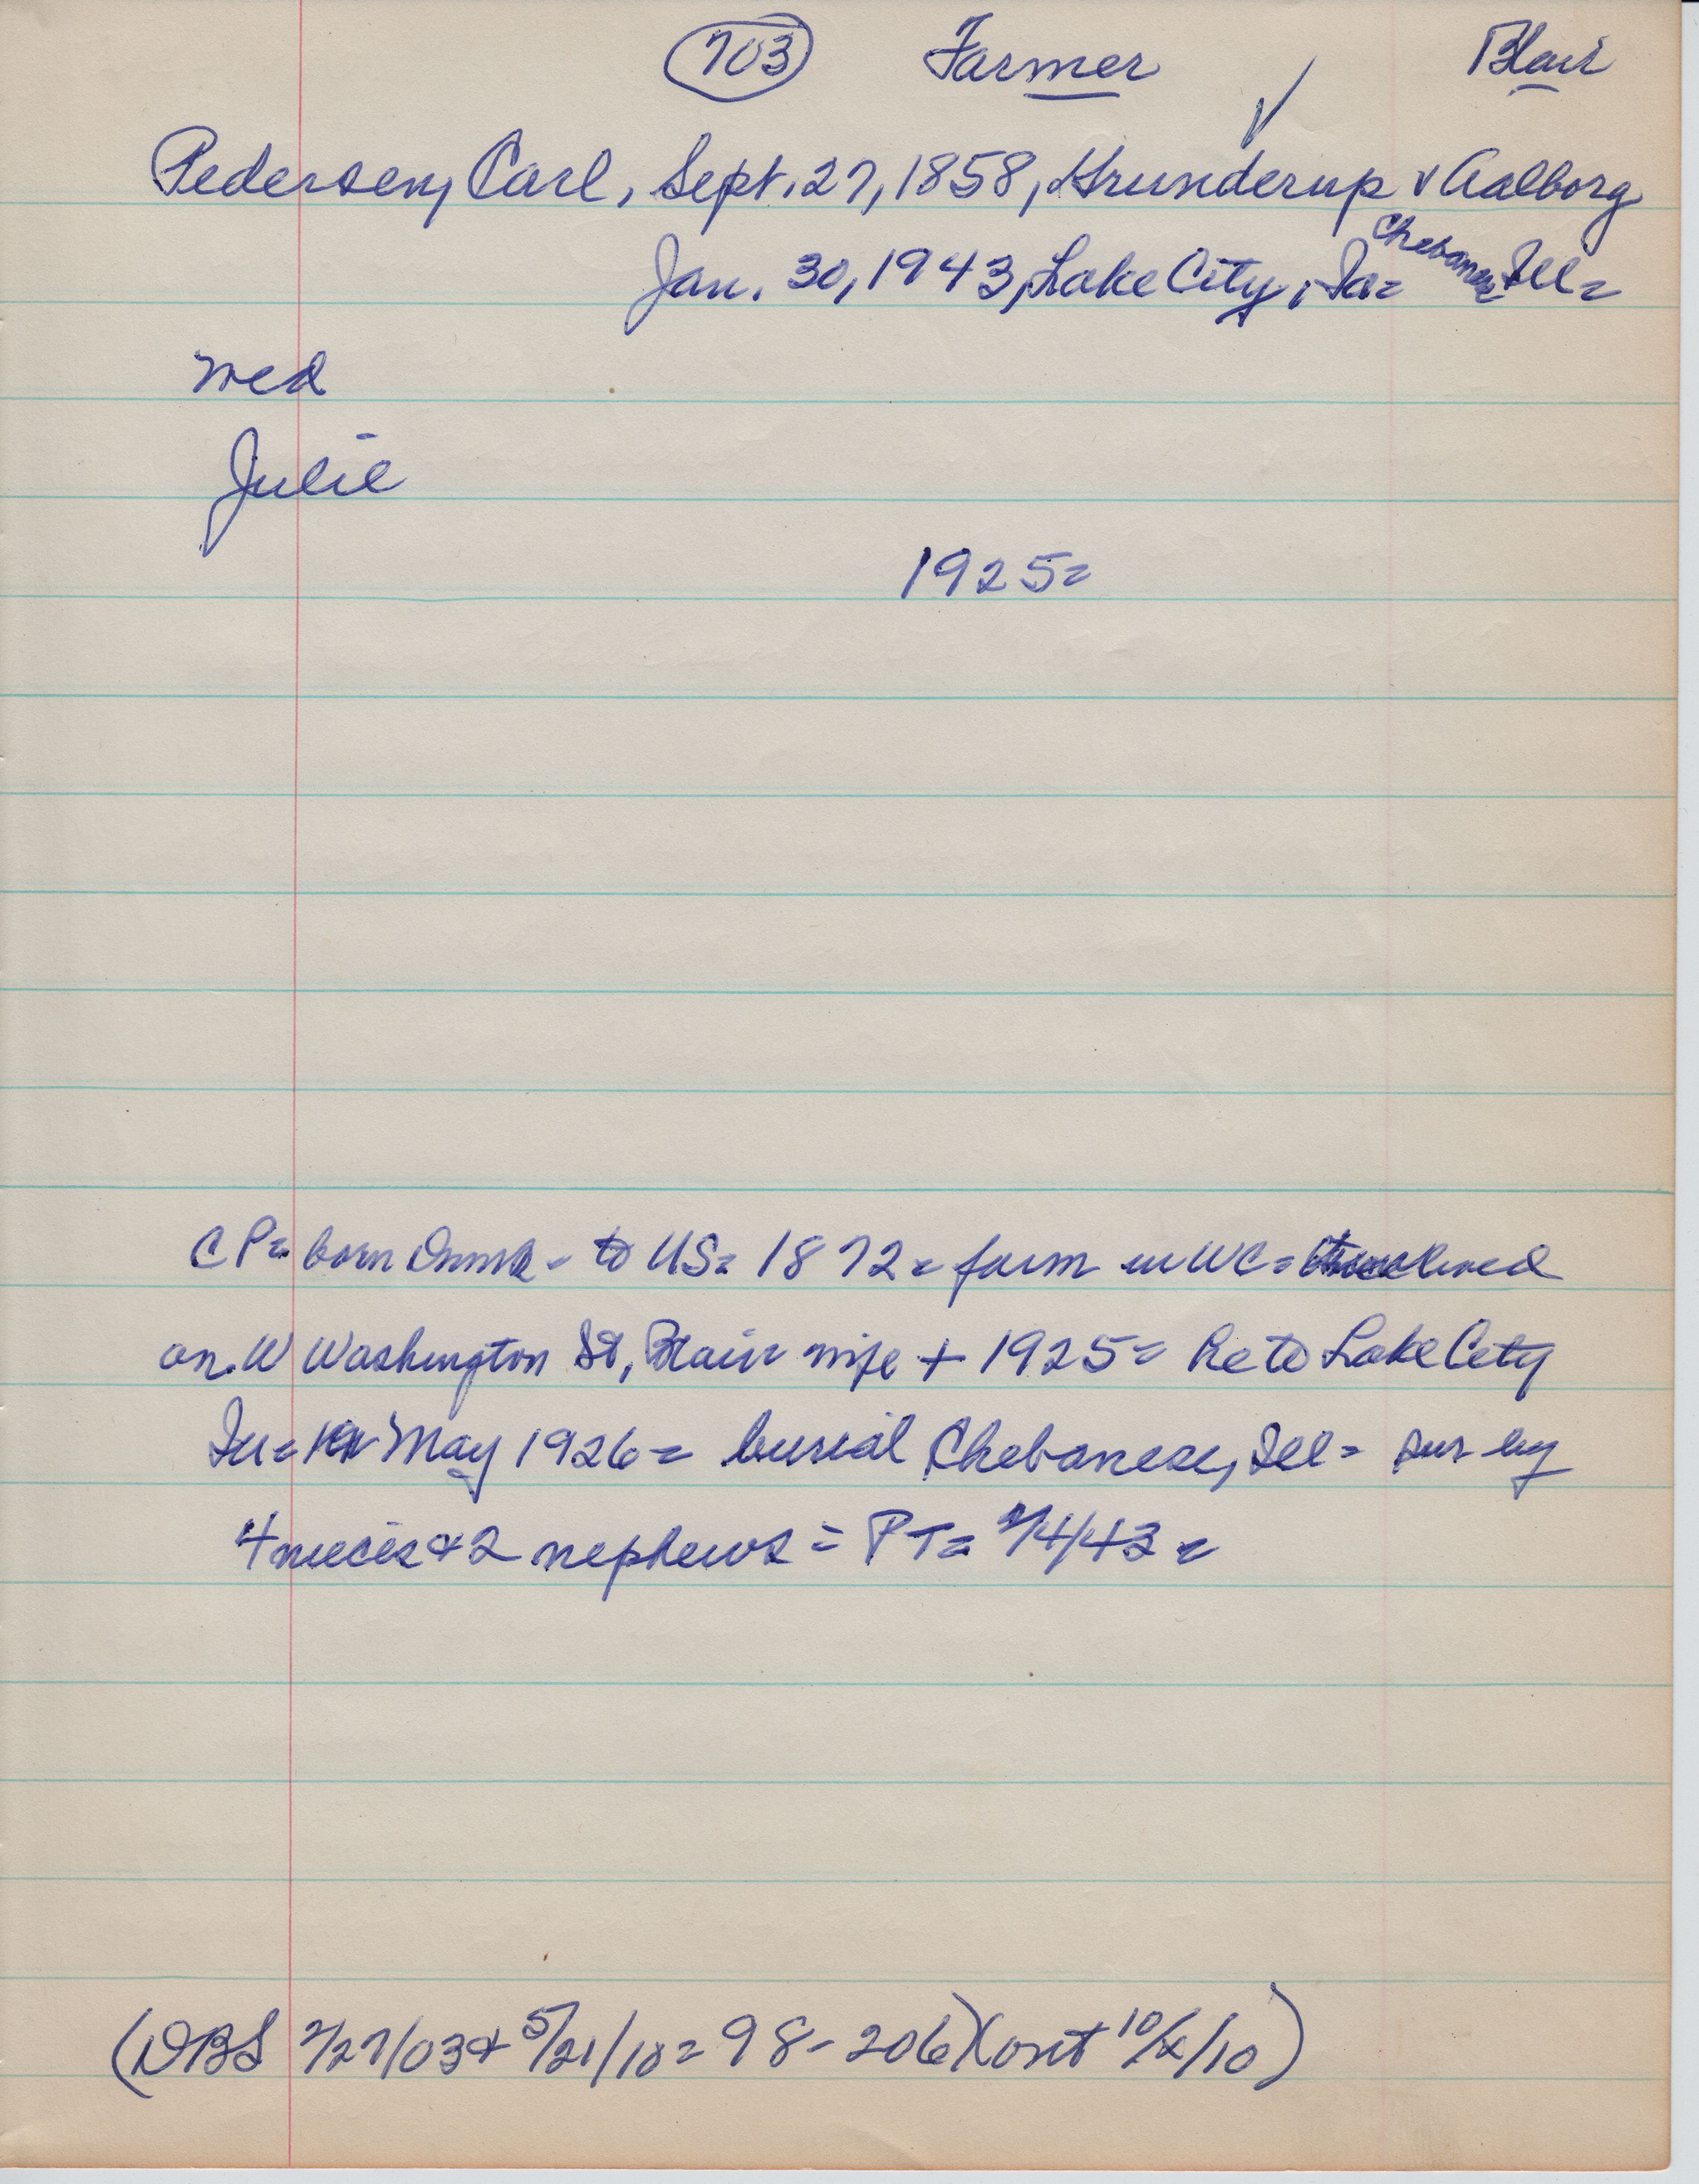 703 Farmer Blair
✓
Pedersen, Carl, Sept. 27, 1858, Grunderup v Aalborg
Jan. 30, 1943, Lake City, Ia= Chebanese Ill=
med
Julie
1925=
CP= born Dnmk- to US= 1872= farm in WC= lived
on W Washington St, Blair wife + 1925= he to Lake City
May 1926= burial Chebanese, Ill= sur by
4 nieces & 2 nephews = PT= 2/4/43=
(DBS 2/27/03 & 5/21/10= 98-206)(ont 10/x/10)